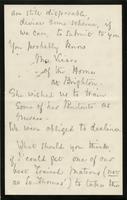 are still disposable,
devise some scheme, if
we can, to submit to you
You probably know
Mrs. Vicars
of the Home
at Brighton.
She wished us to train
Some of her Penitents as
Nurses
We were obliged to decline.
What should you think
if I could get one of our
best Trained Matrons (not
at St. Thomas') to take the